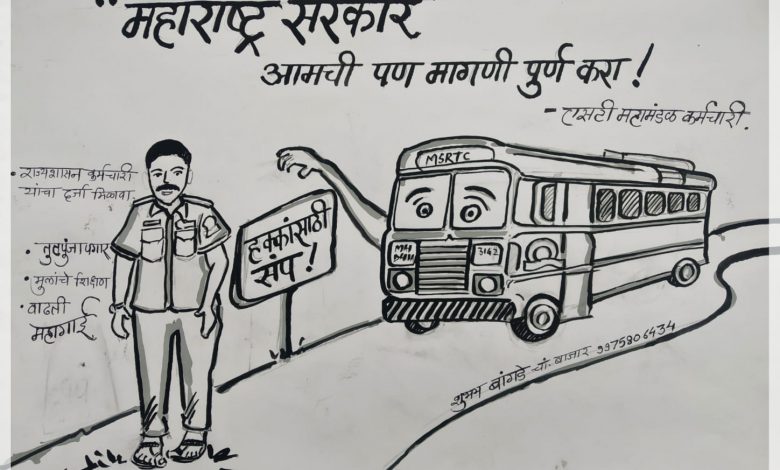 "महाराष्ट्र सरकार"
आमची पण मागणी पुर्ण करा!
- एसटी महामंडळ कर्मचारी.
• राज्यशासन कर्मचारी
यांचा दर्जा मिळावा.
• तुटपुंजा पगार
• मुलांचे शिक्षण
• वाढती
महागाई
हक्कांसाठी
संप!
MSRTC
MH
3162
शुभम बांगडे चां. बाजार 9975806434